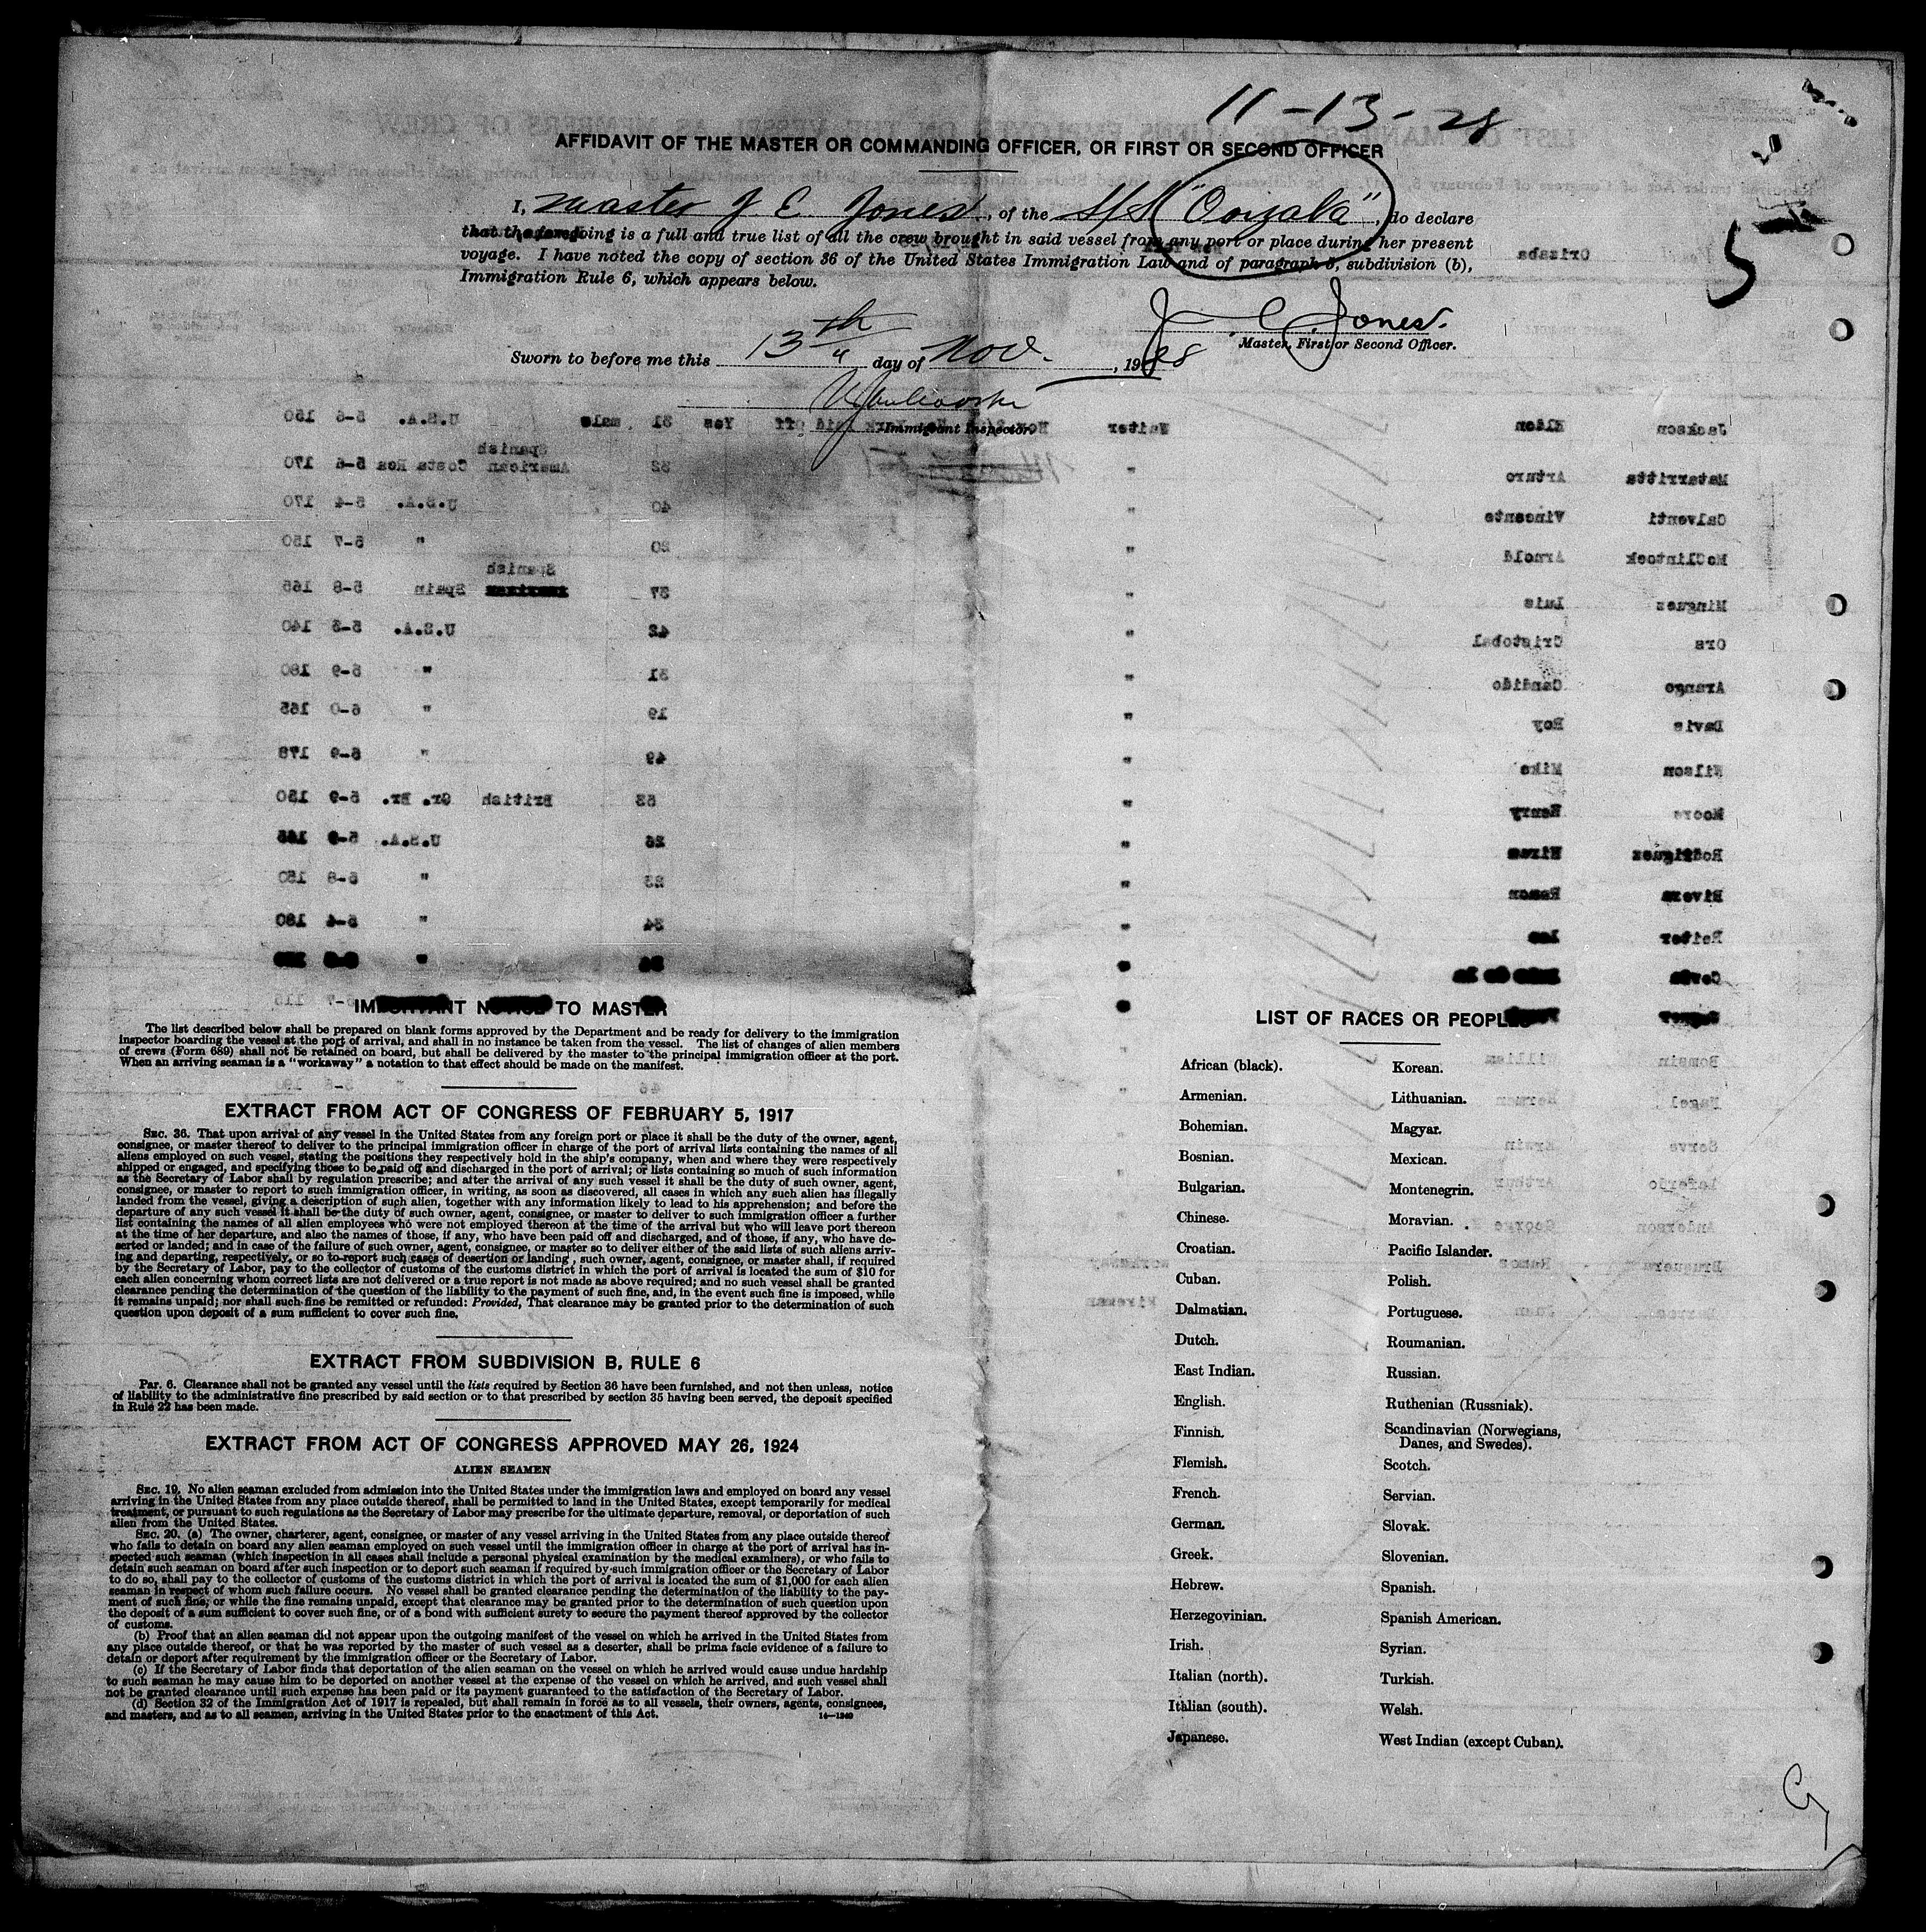 11-13-28
AFFIDAVIT OF THE MASTER OR COMMANDING OFFICER, OR FIRST OR SECOND OFFICER
I, Master J. E. Jones, of the S/S "Orizaba", do declare
that the foregoing is a full and true list of all the crew brought in said vessel from any port or place during her present
voyage. I have noted the copy of section 36 of the United States Immigration Law and of paragraph 6, subdivision (b),
Immigration Rule 6, which appears below.
5
J. E. Jones.
Master, First or Second Officer.
Sworn to before me this 13th day of Nov., 1928
Immigrant Inspector.
IMPORTANT NOTICE TO MASTER
The list described below shall be prepared on blank forms approved by the Department and be ready for delivery to the immigration
inspector boarding the vessel at the port of arrival, and shall in no instance be taken from the vessel. The list of changes of alien members
of crews (Form 689) shall not be retained on board, but shall be delivered by the master to the principal immigration officer at the port.
When an arriving seaman is a "workaway" a notation to that effect should be made on the manifest.
EXTRACT FROM ACT OF CONGRESS OF FEBRUARY 5, 1917
SEC. 36. That upon arrival of any vessel in the United States from any foreign port or place it shall be the duty of the owner, agent,
consignee, or master thereof to deliver to the principal immigration officer in charge of the port of arrival lists containing the names of all
aliens employed on such vessel, stating the positions they respectively hold in the ship's company, when and where they were respectively
shipped or engaged, and specifying those to be paid off and discharged in the port of arrival; or lists containing so much of such information
as the Secretary of Labor shall by regulation prescribe; and after the arrival of any such vessel it shall be the duty of such owner, agent,
consignee, or master to report to such immigration officer, in writing, as soon as discovered, all cases in which any such alien has illegally
landed from the vessel, giving a description of such alien, together with any information likely to lead to his apprehension; and before the
departure of any such vessel it shall be the duty of such owner, agent, consignee, or master to deliver to such immigration officer a further
list containing the names of all alien employees who were not employed thereon at the time of the arrival but who will leave port thereon
at the time of her departure, and also the names of those, if any, who have been paid off and discharged, and of those, if any, who have de-
serted or landed; and in case of the failure of such owner, agent, consignee, or master so to deliver either of the said lists of such aliens arriv-
ing and departing, respectively, or so to report such cases of desertion or landing, such owner, agent, consignee, or master shall, if required
by the Secretary of Labor, pay to the collector of customs of the customs district in which the port of arrival is located the sum of $10 for
each alien concerning whom correct lists are not delivered or a true report is not made as above required; and no such vessel shall be granted
clearance pending the determination of the question of the liability to the payment of such fine, and, in the event such fine is imposed, while
it remains unpaid; nor shall such fine be remitted or refunded: Provided, That clearance may be granted prior to the determination of such
question upon deposit of a sum sufficient to cover such fine.
EXTRACT FROM SUBDIVISION B, RULE 6
Par. 6. Clearance shall not be granted any vessel until the lists required by Section 36 have been furnished, and not then unless, notice
of liability to the administrative fine prescribed by said section or to that prescribed by section 35 having been served, the deposit specified
in Rule 22 has been made.
EXTRACT FROM ACT OF CONGRESS APPROVED MAY 26, 1924
ALIEN SEAMEN
SEC. 19. No alien seaman excluded from admission into the United States under the immigration laws and employed on board any vessel
arriving in the United States from any place outside thereof, shall be permitted to land in the United States, except temporarily for medical
treatment, or pursuant to such regulations as the Secretary of Labor may prescribe for the ultimate departure, removal, or deportation of such
alien from the United States.
SEC. 20. (a) The owner, charterer, agent, consignee, or master of any vessel arriving in the United States from any place outside thereof
who fails to detain on board any alien seaman employed on such vessel until the immigration officer in charge at the port of arrival has in-
spected such seaman (which inspection in all cases shall include a personal physical examination by the medical examiners), or who fails to
detain such seaman on board after such inspection or to deport such seaman if required by such immigration officer or the Secretary of Labor
to do so, shall pay to the collector of customs of the customs district in which the port of arrival is located the sum of $1,000 for each alien
seaman in respect of whom such failure occurs. No vessel shall be granted clearance pending the determination of the liability to the pay-
ment of such fine, or while the fine remains unpaid, except that clearance may be granted prior to the determination of such question upon
the deposit of a sum sufficient to cover such fine, or of a bond with sufficient surety to secure the payment thereof approved by the collector
of customs.
(b) Proof that an alien seaman did not appear upon the outgoing manifest of the vessel on which he arrived in the United States from
any place outside thereof, or that he was reported by the master of such vessel as a deserter, shall be prima facie evidence of a failure to
detain or deport after requirement by the immigration officer or the Secretary of Labor.
(c) If the Secretary of Labor finds that deportation of the alien seaman on the vessel on which he arrived would cause undue hardship
to such seaman he may cause him to be deported on another vessel at the expense of the vessel on which he arrived, and such vessel shall
not be granted clearance until such expense has been paid or its payment guaranteed to the satisfaction of the Secretary of Labor.
(d) Section 32 of the Immigration Act of 1917 is repealed, but shall remain in force as to all vessels, their owners, agents, consignees,
and masters, and as to all seamen, arriving in the United States prior to the enactment of this Act.
14—1240
LIST OF RACES OR PEOPLES
African (black).
Armenian.
Bohemian.
Bosnian.
Bulgarian.
Chinese.
Croatian.
Cuban.
Dalmatian.
Dutch.
East Indian.
English.
Finnish.
Flemish.
French.
German.
Greek.
Hebrew.
Herzegovinian.
Irish.
Italian (north).
Italian (south).
Japanese.
Korean.
Lithuanian.
Magyar.
Mexican.
Montenegrin.
Moravian.
Pacific Islander.
Polish.
Portuguese.
Roumanian.
Russian.
Ruthenian (Russniak).
Scandinavian (Norwegians,
Danes, and Swedes).
Scotch.
Servian.
Slovak.
Slovenian.
Spanish.
Spanish American.
Syrian.
Turkish.
Welsh.
West Indian (except Cuban).